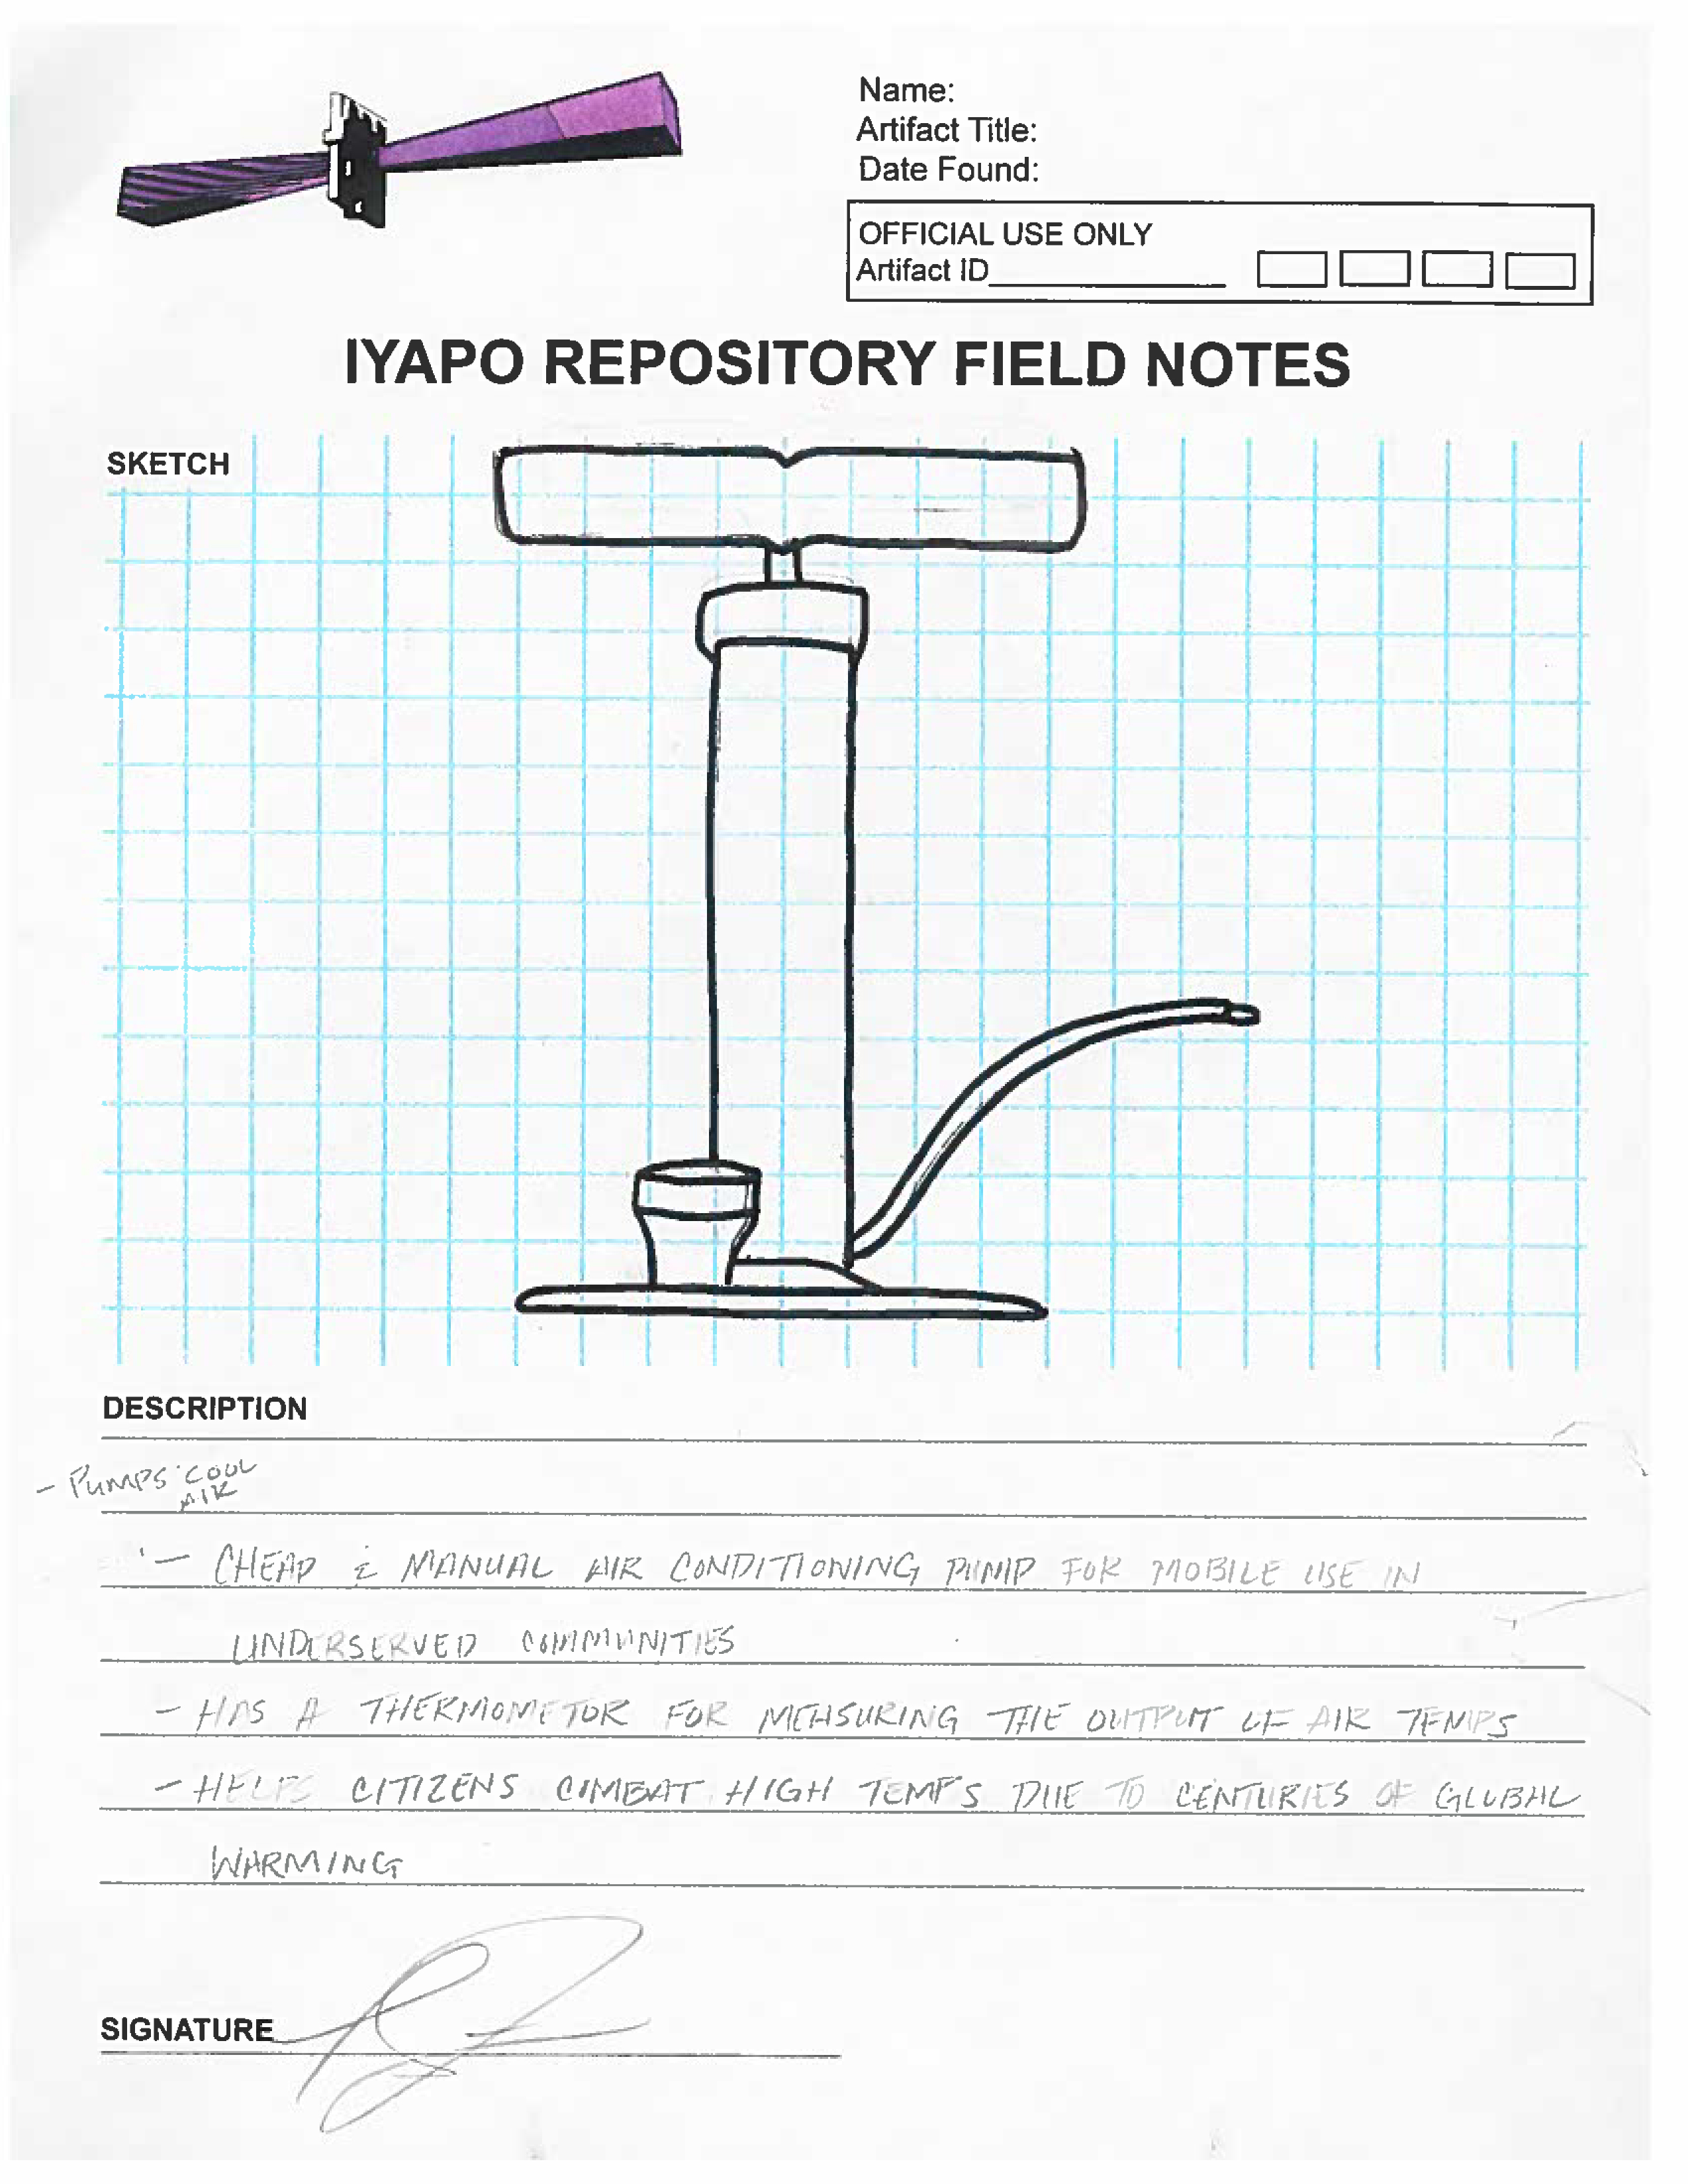 Name:
Artifact Title:
Date Found:
OFFICIAL USE ONLY
Artifact ID
IYAPO REPOSITORY FIELD NOTES
SKETCH
DESCRIPTION
- PUMPS COOL
AIR
- CHEAP & MANUAL AIR CONDITIONING PUMP FOR MOBILE USE IN
UNDERSERVED COMMUNITIES
- HAS A THERMOMETOR FOR MEASURING THE OUTPUT OF AIR TEMPS
- HELPS CITIZENS COMBAT HIGH TEMPS DUE TO CENTURIES OF GLOBAL
WARMING
SIGNATURE